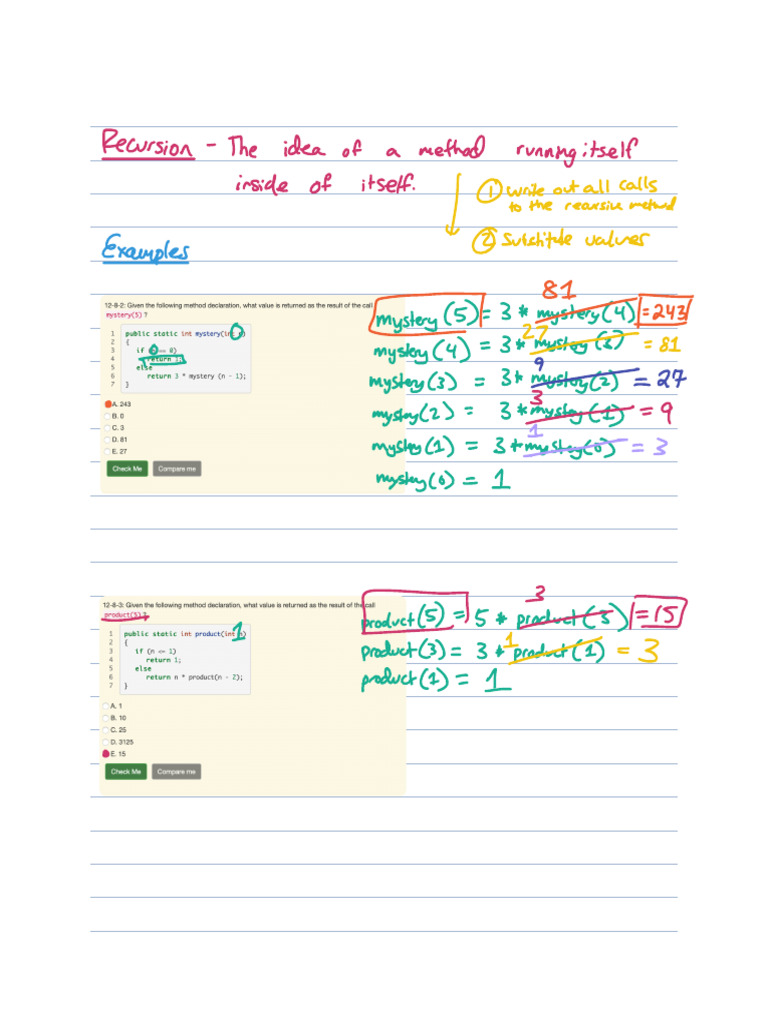 Recursion - The idea of a method running itself
inside of itself.
① write out all calls
to the recursive method
② substitute values
Examples
12-8-2: Given the following method declaration, what value is returned as the result of the call
mystery(5) ?
1 public static int mystery(int n)
2 {
3 if (0 == 0)
4 return 1;
5 else
6 return 3 * mystery (n - 1);
7 }
A. 243
B. 0
C. 3
D. 81
E. 27
Check Me Compare me
81
mystery(5) = 3 * mystery(4) = 243
27
mystery(4) = 3 * mystery(3) = 81
9
mystery(3) = 3 * mystery(2) = 27
3
mystery(2) = 3 * mystery(1) = 9
1
mystery(1) = 3 * mystery(0) = 3
mystery(0) = 1
12-8-3: Given the following method declaration, what value is returned as the result of the call
product(5) ?
1
1 public static int product(int n)
2 {
3 if (n <= 1)
4 return 1;
5 else
6 return n * product(n - 2);
7 }
A. 1
B. 10
C. 25
D. 3125
E. 15
Check Me Compare me
3
product(5) = 5 * product(3) = 15
1
product(3) = 3 * product(1) = 3
product(1) = 1